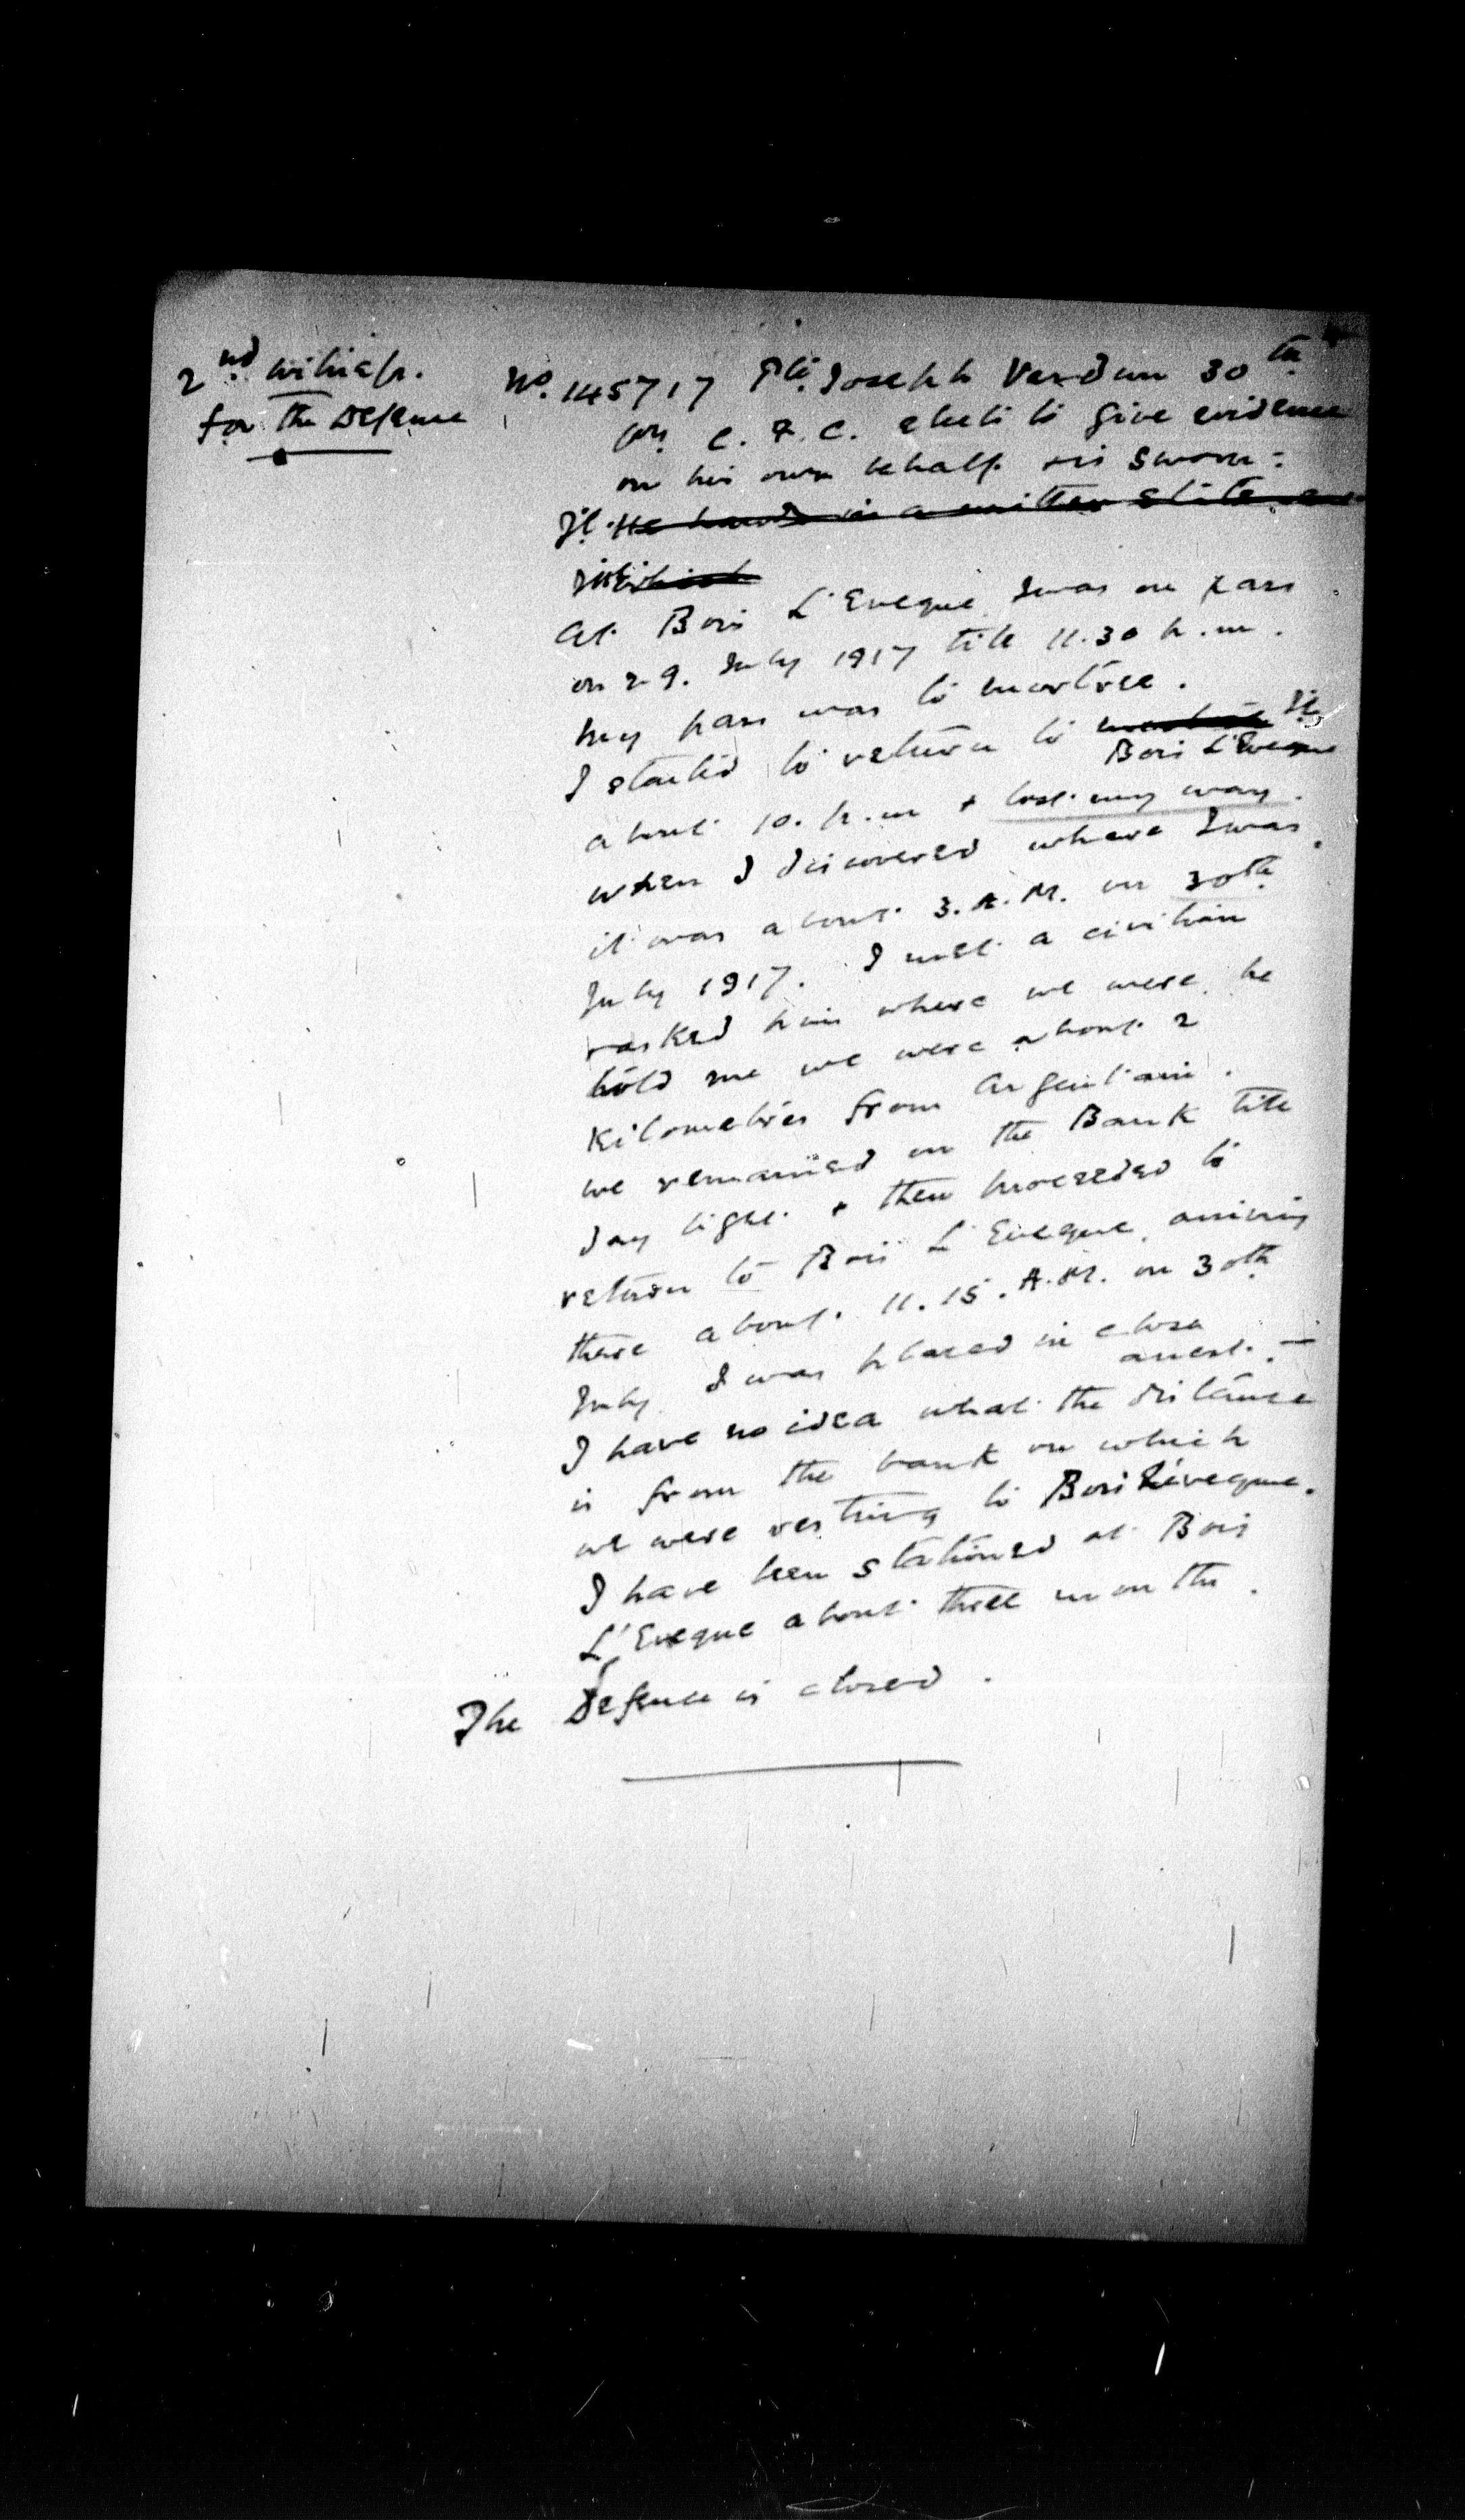 2nd witness.
for the Defence
No. 145717 Pte. Joseph Verdun 30th
Coy C. F. C. elects to give evidence
on his own behalf & is sworn:
He hands in a written statement
which
At Bois L'Eveque I was on pass
on 29. July 1917 till 11.30 p.m.
My pass was to Mortree.
I started to return to Mortree
Bois L'Eveque
about 10. p.m & lost my way.
When I discovered where I was
it was about 3. A.M. on 30th
July 1917. I met a civilian
& asked him where we were, he
told me we were about 2
Kilometres from Argentain.
We remained on the Bank till
day light & then proceeded to
return to Bois L'Eveque, arriving
there about 11.15. A.M. on 30th
July. I was placed in close
arrest. —
I have no idea what the distance
is from the bank on which
we were resting to Bois L'éveque.
I have been stationed at Bois
L'Eveque about three months.
The Defence is closed.